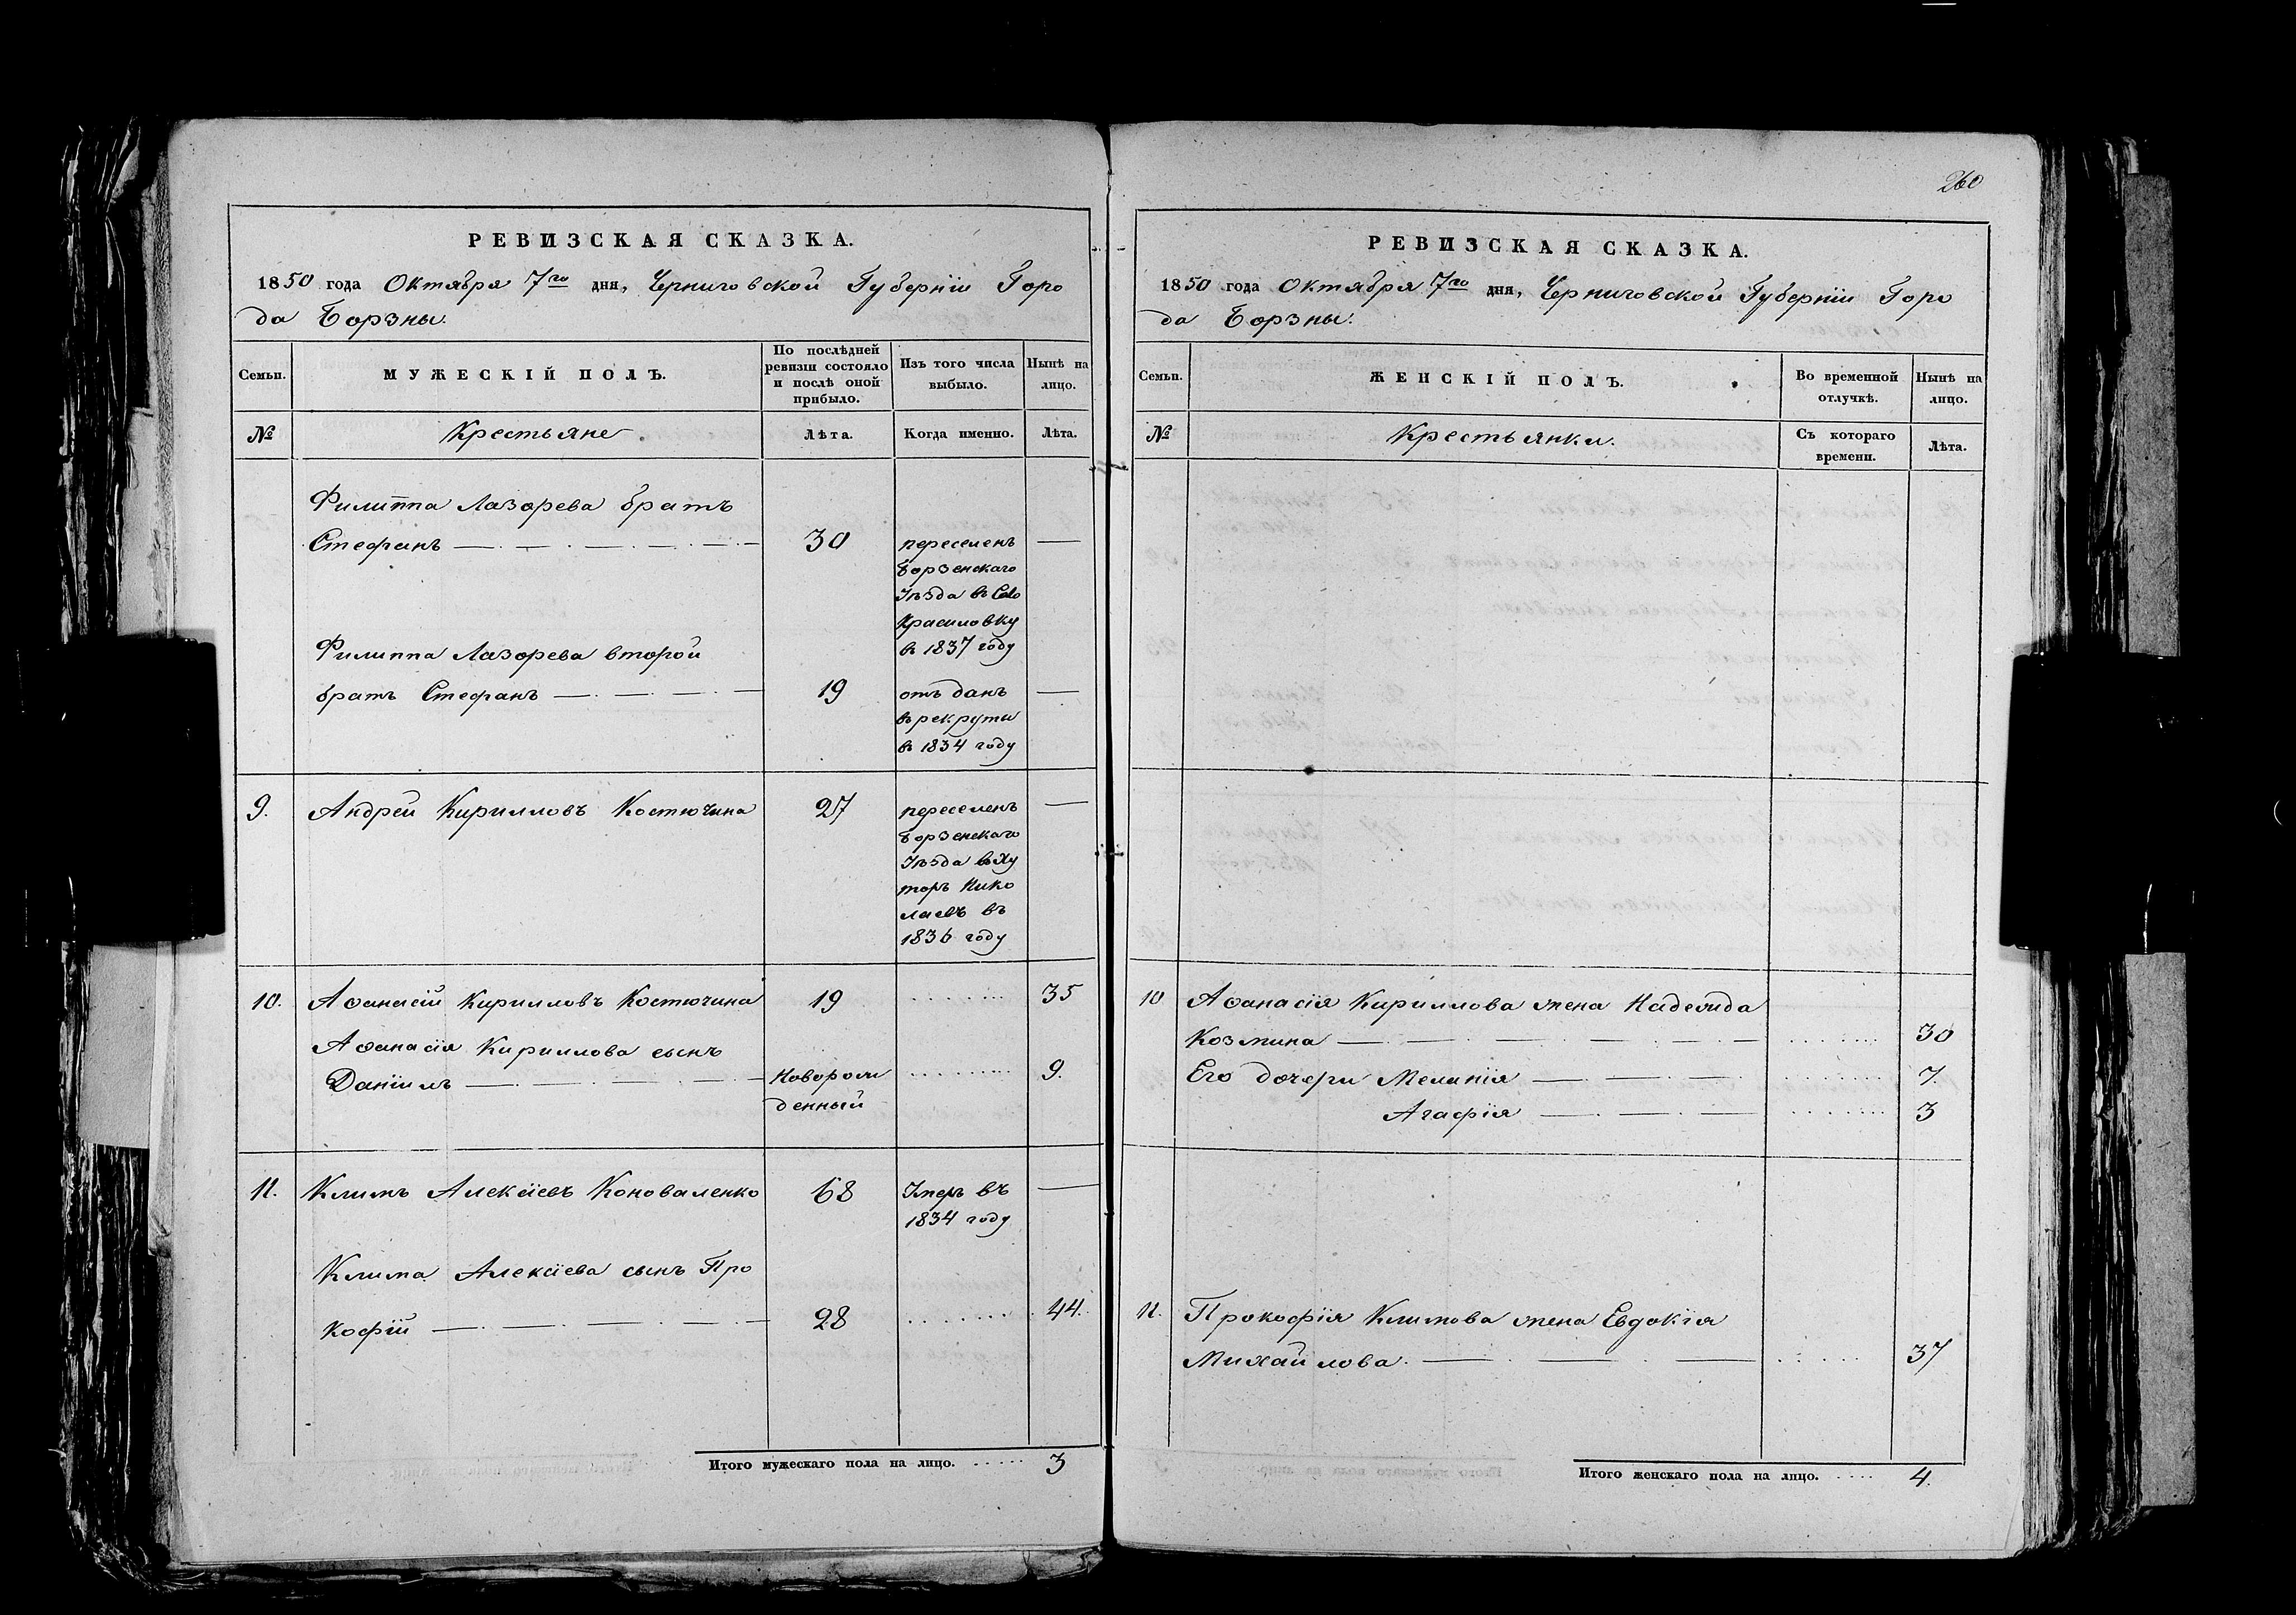 РЕВИЗСКАЯ СКАЗКА.
1850 года Октября 7го дня, Черниговской Губерніи Горо
да Борзны.
Семьи.
МУЖЕСКІЙ ПОЛЪ.
По послѣдней
ревизіи состояло
и послѣ оной
прибыло.
Изъ того числа
выбыло.
Нынѣ на
лицо.
№
Крестьяне.
Лѣта.
Когда именно.
Лѣта.
Филиппа Лазорева братъ
Стефанъ
30
переселенъ
борзенскаго
Уѣзда въ Село
Красиловку
въ 1837 году
Филиппа Лазорева второй
братъ Стефанъ
19
отъ данъ
въ рекруты
въ 1834 году
9. Андрей Кирилловъ Костючина
27
переселенъ
борзенскаго
Уѣзда въ Ху
торъ Нико
лаевъ въ
1836 году
10. Аѳанасій Кирилловъ Костючина 19 35
Аѳанасія Кириллова сынъ
Даніилъ
Новорож
денный
9.
11. Климъ Алексіевъ Коноваленко 68
Умеръ въ
1834 году
Клима Алексіева сынъ Про
кофій 28 44.
Итого мужескаго пола на лицо. 3
260
РЕВИЗСКАЯ СКАЗКА.
1850 года Октября 7го дня, Черниговской Губерніи Горо
да Борзны.
Семьи.
ЖЕНСКІЙ ПОЛЪ.
Во временной
отлучкѣ.
Нынѣ на
лицо.
№
Крестьянки.
Съ котораго
времени.
Лѣта.
10 Аѳанасія Кириллова жена Надежда
Козмина 30
Его дочери Меланія 7.
Агафія 3
11. Прокофія Климова жена Евдокія
Михайлова. 37
Итого женскаго пола на лицо. 4.